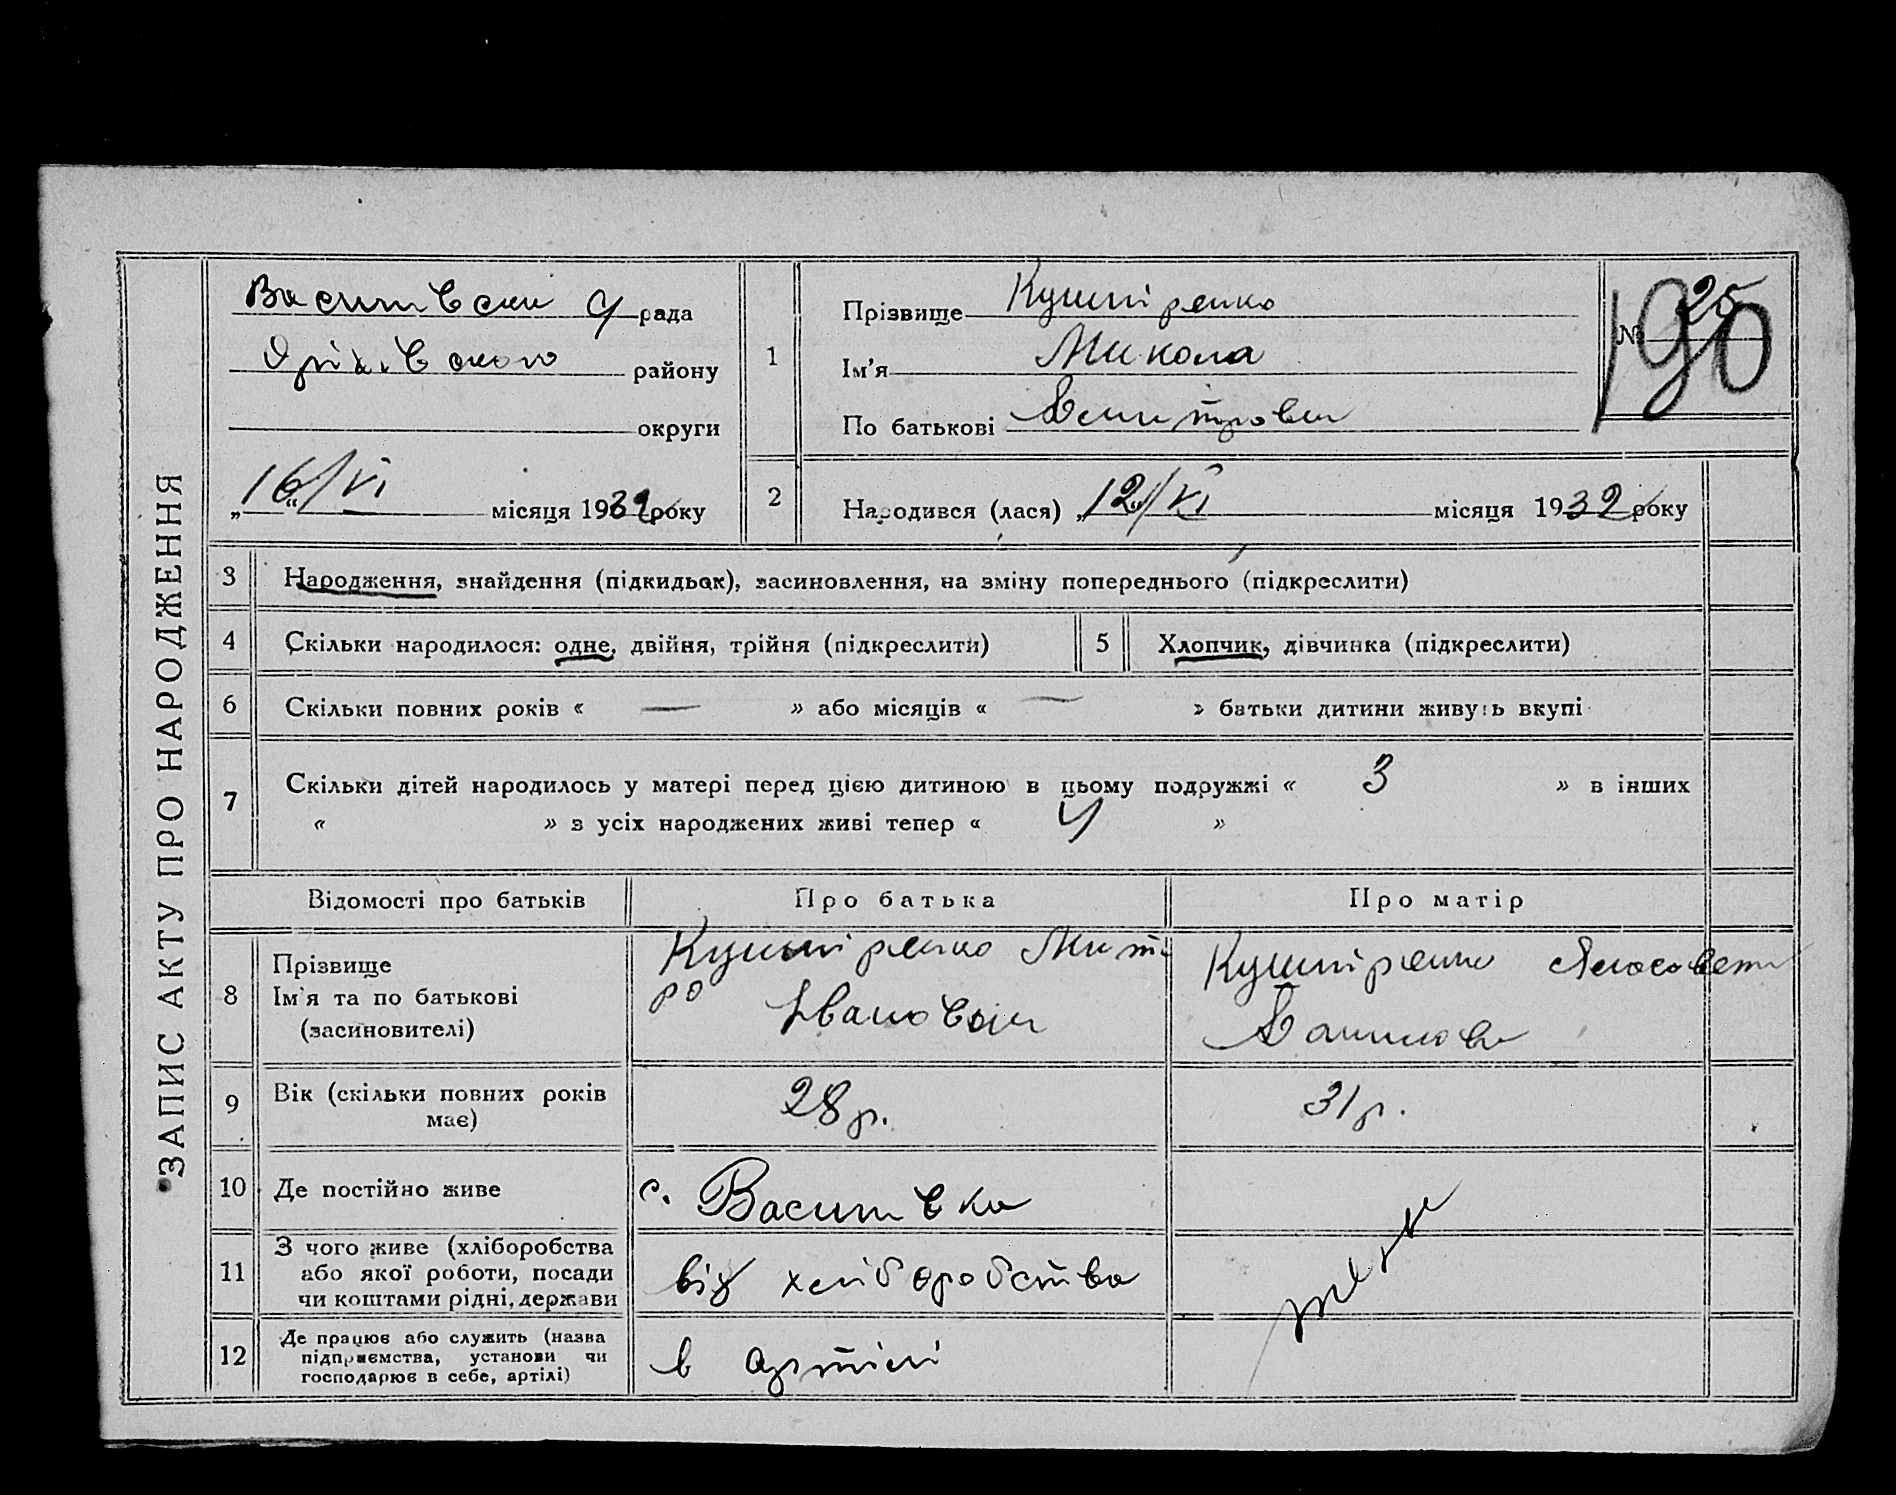 ЗАПИС АКТУ ПРО НАРОДЖЕННЯ
Василівськ рада
Оріхівського району
округи
„16/VI“ місяця 1932 року
1
Прізвище Кушніренко
Ім'я Микола
По батькові Дмитрович
№ 25
190
2
Народився (лася) „12/VI місяця 1932 року
3 Народження, знайдення (підкидьок), засиновлення, на зміну попереднього (підкреслити)
4 Скільки народилося: одне, двійня, трійня (підкреслити)
5 Хлопчик, дівчинка (підкреслити)
6 Скільки повних років « — » або місяців « — » батьки дитини живуть вкупі
7 Скільки дітей народилось у матері перед цією дитиною в цьому подружжі « 3 » в інших
« » з усіх народжених живі тепер « 4 »
Відомості про батьків
Про батька
Про матір
8 Прізвище
Ім'я та по батькові
(засиновителі)
Кушніренко Мит
ро
Іванович
Кушніренко
Данилов
9 Вік (скільки повних років
має)
28 р.
31 р.
10 Де постійно живе
с. Василівка
11 З чого живе (хліборобства
або якої роботи, посади
чи коштами рідні, держави
від хліборобства
12 Де працює або служить (назва
підприємства, установи чи
господарює в себе, артілі)
в артілі